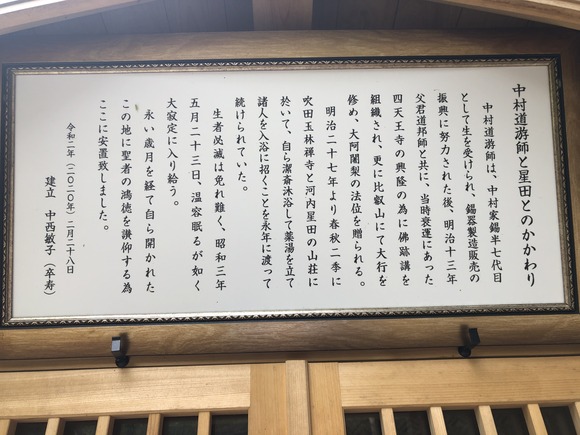 中村道游師と星田とのかかわり
中村道游師は、中村家錫半七代目
として生を受けられ、錫器製造販売の
振興に努力された後、明治十三年
父君道邦師と共に、当時衰運にあった
四天王寺の興隆の為に佛跡講を
組織され、更に比叡山にて大行を
修め、大阿闍梨の法位を贈られる。
明治二十七年より春秋二季に
吹田玉林禅寺と河内星田の山荘に
於いて、自ら潔斎沐浴して薬湯を立て
諸人を入浴に招くことを永年に渡って
続けられていた。
生者必滅は免れ難く、昭和三年
五月二十三日、温容眠るが如く
大寂定に入り給う。
永い歳月を経て自ら開かれた
この地に聖者の鴻徳を讃仰する為
ここに安置致しました。
令和二年(二〇二〇年)二月二十八日
建立 中西敏子(卒寿)